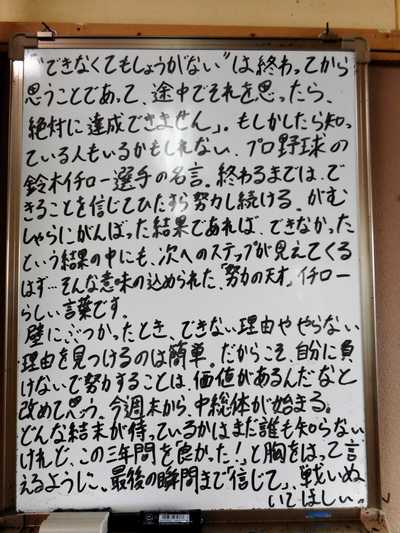 "できなくてもしょうがない"は終わってから
思うことであって、途中でそれを思ったら、
絶対に達成できません」。もしかしたら知っ
ている人もいるかもしれない、プロ野球の
鈴木イチロー選手の名言。終わるまでは、で
きることを信じてひたすら努力し続ける。がむ
しゃらにがんばった結果であれば、できなかった
という結果の中にも、次へのステップが見えてくる
はず…そんな意味の込められた、「努力の天才」イチロー
らしい言葉です。
壁にぶつかったとき、できない理由ややらない
理由を見つけるのは簡単。だからこそ、自分に負
けないで努力することは、価値があるんだなと
改めて思う。今週末から、中総体が始まる。
どんな結末が待っているかはまだ誰も知らない
けれど、この三年間を「良かった!」と胸をはって言
えるように、最後の瞬間まで「信じて」、戦いぬ
いてほしい。